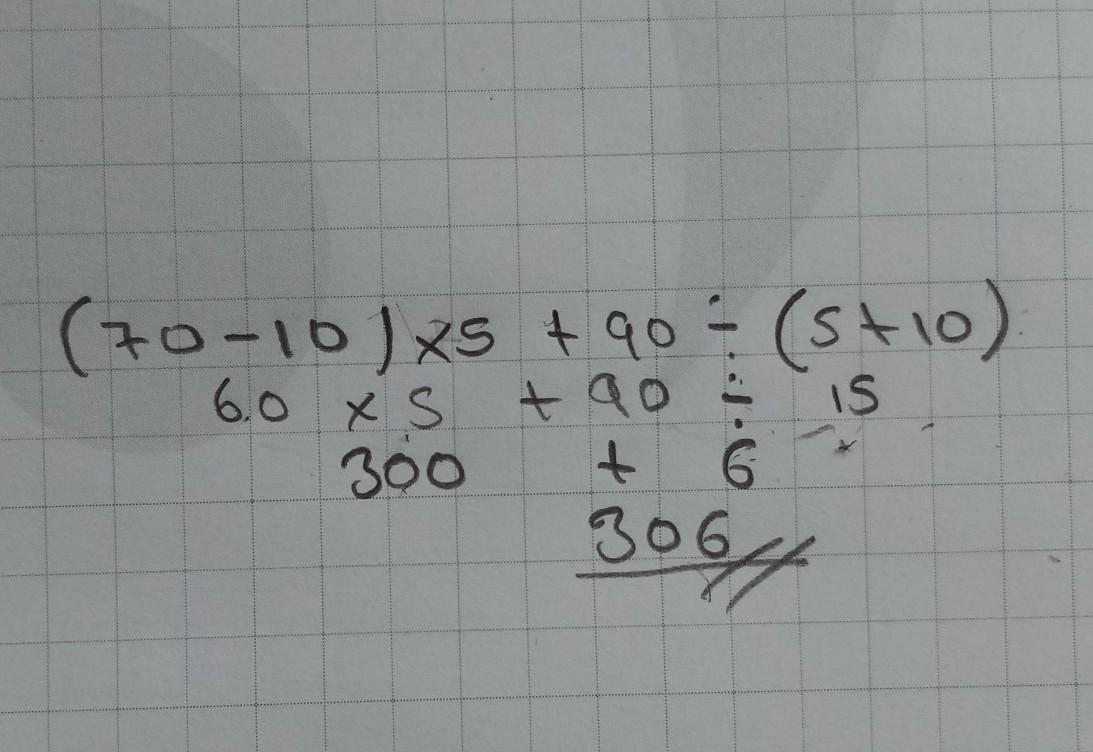 (70-10)×5 + 90 ÷ (5+10)
60 × 5 + 90 ÷ 15
300 + 6
306